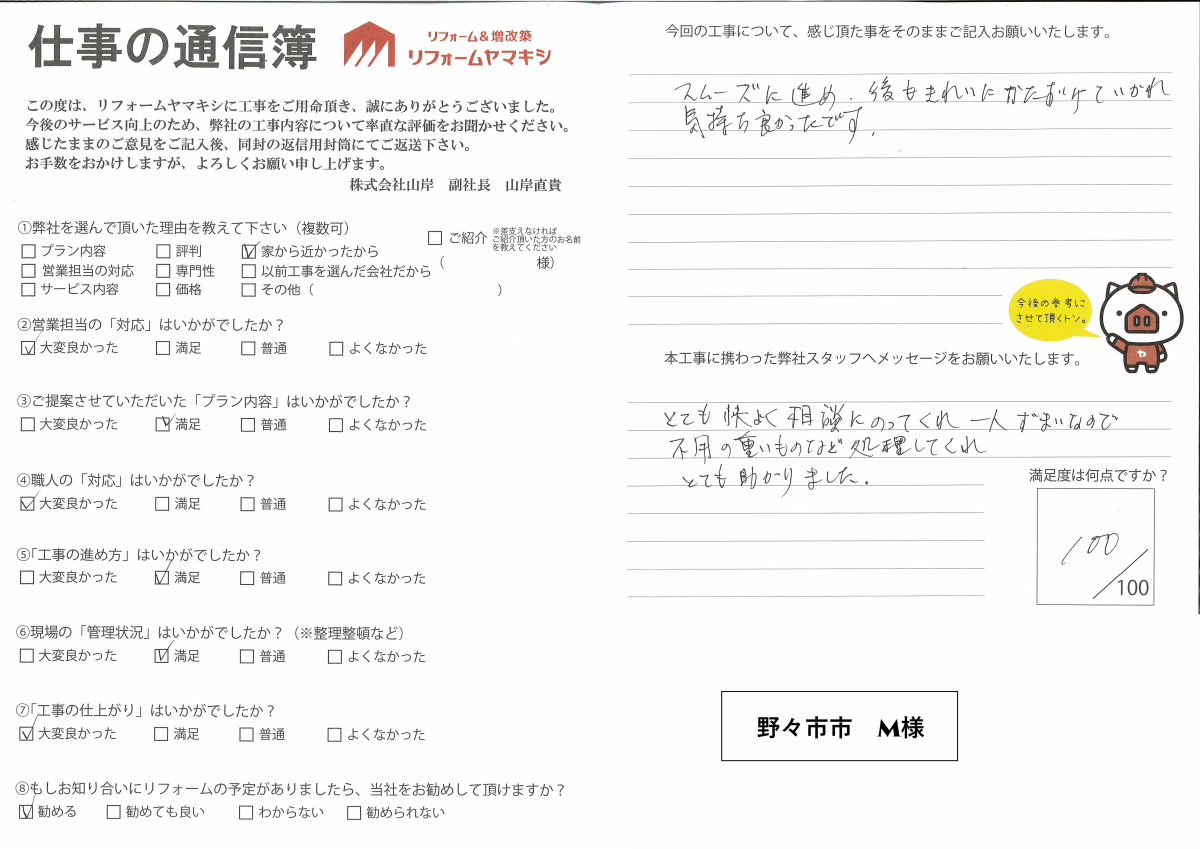 仕事の通信簿
リフォーム&増改築
リフォームヤマキシ
この度は、リフォームヤマキシに工事をご用命頂き、誠にありがとうございました。
今後のサービス向上のため、弊社の工事内容について率直な評価をお聞かせください。
感じたままのご意見をご記入後、同封の返信用封筒にてご返送下さい。
お手数をおかけしますが、よろしくお願い申し上げます。
株式会社山岸 副社長 山岸直貴
①弊社を選んで頂いた理由を教えて下さい（複数可）
□ プラン内容 □ 評判 ☑ 家から近かったから
□ 営業担当の対応 □ 専門性 □ 以前工事を選んだ会社だから
□ サービス内容 □ 価格 □ その他（ ）
□ ご紹介 ※差支えなければ
ご紹介頂いた方のお名前
を教えてください
（ 様）
②営業担当の「対応」はいかがでしたか？
☑ 大変良かった □ 満足 □ 普通 □ よくなかった
③ご提案させていただいた「プラン内容」はいかがでしたか？
□ 大変良かった ☑ 満足 □ 普通 □ よくなかった
④職人の「対応」はいかがでしたか？
☑ 大変良かった □ 満足 □ 普通 □ よくなかった
⑤「工事の進め方」はいかがでしたか？
□ 大変良かった ☑ 満足 □ 普通 □ よくなかった
⑥現場の「管理状況」はいかがでしたか？（※整理整頓など）
□ 大変良かった ☑ 満足 □ 普通 □ よくなかった
⑦「工事の仕上がり」はいかがでしたか？
☑ 大変良かった □ 満足 □ 普通 □ よくなかった
⑧もしお知り合いにリフォームの予定がありましたら、当社をお勧めして頂けますか？
☑ 勧める □ 勧めても良い □ わからない □ 勧められない
今回の工事について、感じ頂た事をそのままご記入お願いいたします。
スムーズに進め、後もきれいにかたずけていかれ
気持ち良かったです。
今後の参考に
させて頂くトン。
ヤ
本工事に携わった弊社スタッフへメッセージをお願いいたします。
とても快よく相談にのってくれ 一人ずまいなので
不用の重いものなど処理してくれ
とても助かりました。
満足度は何点ですか？
100
/100
野々市市 M様